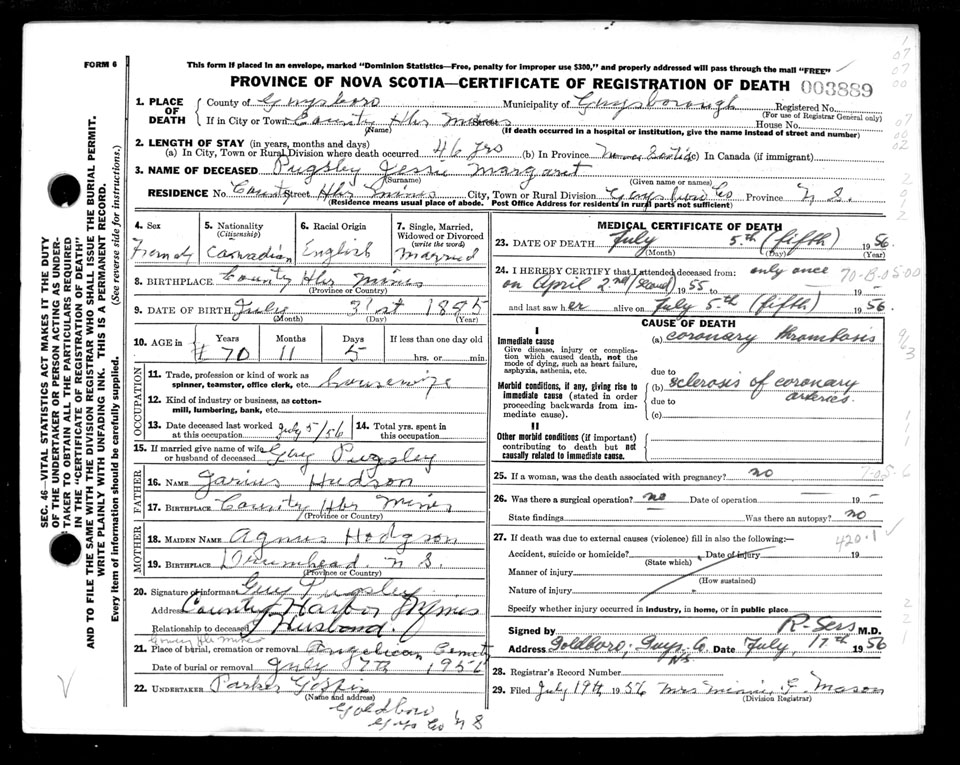 FORM 6
This form if placed in an envelope, marked "Dominion Statistics—Free, penalty for improper use $300," and properly addressed will pass through the mail "FREE"
PROVINCE OF NOVA SCOTIA—CERTIFICATE OF REGISTRATION OF DEATH 003889
1. PLACE OF DEATH County of Guysboro Municipality of Guysborough Registered No.
(For use of Registrar General only)
If in City or Town County Hbr Mines Street House No.
(Name) (If death occurred in a hospital or institution, give the name instead of street and number)
2. LENGTH OF STAY (in years, months and days)
(a) In City, Town or Rural Division where death occurred 46 yrs (b) In Province Nova Scotia (c) In Canada (if immigrant)
3. NAME OF DECEASED Pugsley Jessie Margaret
(Surname) (Given name or names)
RESIDENCE No. County Street Hbr Mines City, Town or Rural Division Guysboro Co Province N. S.
(Residence means usual place of abode. Post Office Address for residents in rural parts not sufficient)
4. Sex 5. Nationality (Citizenship) 6. Racial Origin 7. Single, Married, Widowed or Divorced (write the word)
Female Canadian English Married
8. BIRTHPLACE County Hbr Mines
(Province or Country)
9. DATE OF BIRTH July 31st 1885
(Month) (Day) (Year)
10. AGE in Years Months Days If less than one day old
70 11 5 hrs. or min.
OCCUPATION
11. Trade, profession or kind of work as spinner, teamster, office clerk, etc. housewife
12. Kind of industry or business, as cotton-mill, lumbering, bank, etc.
13. Date deceased last worked at this occupation July 5/56 14. Total yrs. spent in this occupation
15. If married give name of wife or husband of deceased Guy Pugsley
FATHER
16. NAME Jarius Hudson
17. BIRTHPLACE County Hbr Mines
(Province or Country)
MOTHER
18. MAIDEN NAME Agnus Hodgson
19. BIRTHPLACE Drumhead N S.
(Province or Country)
20. Signature of informant Guy Pugsley
Address County Harbor Mines
Relationship to deceased Husband
County Hbr Mines
21. Place of burial, cremation or removal Angelican Cemetery
Date of burial or removal July 7th 1956
22. UNDERTAKER Parker
(Name and address)
Goldboro
Guys Co N S
MEDICAL CERTIFICATE OF DEATH
23. DATE OF DEATH July 5th (fifth) 1956
(Month) (Day) (Year)
24. I HEREBY CERTIFY that I attended deceased from: only once
on April 2nd (second) 1955 to 19
and last saw her alive on July 5th (fifth) 1956.
70-B-05-00
CAUSE OF DEATH
I
Immediate cause
Give disease, injury or complication which caused death, not the mode of dying, such as heart failure, asphyxia, asthenia, etc.
(a) coronary thrombosis
due to
Morbid conditions, if any, giving rise to immediate cause (stated in order proceeding backwards from immediate cause).
(b) sclerosis of coronary arteries.
due to
(c)
II
Other morbid conditions (if important) contributing to death but not causally related to immediate cause.
25. If a woman, was the death associated with pregnancy? no
26. Was there a surgical operation? no Date of operation 19
State findings Was there an autopsy? no
27. If death was due to external causes (violence) fill in also the following:— 420.1
Accident, suicide or homicide? Date of injury 19
(State which)
Manner of injury
(How sustained)
Nature of injury
Specify whether injury occurred in industry, in home, or in public place
Signed by R-Sers M.D.
Address Goldboro; Guys. Co. NS Date July, 17th 1956
28. Registrar's Record Number
29. Filed July 19th 1956 Mrs Minnie F. Mason
(Division Registrar)
SEC. 46—VITAL STATISTICS ACT MAKES IT THE DUTY
OF THE UNDERTAKER OR PERSON ACTING AS UNDERTAKER TO OBTAIN ALL THE PARTICULARS REQUIRED
IN THE "CERTIFICATE OF REGISTRATION OF DEATH"
AND TO FILE THE SAME WITH THE DIVISION REGISTRAR WHO SHALL ISSUE THE BURIAL PERMIT.
WRITE PLAINLY WITH UNFADING INK. THIS IS A PERMANENT RECORD.
Every item of information should be carefully supplied. (See reverse side for instructions.)